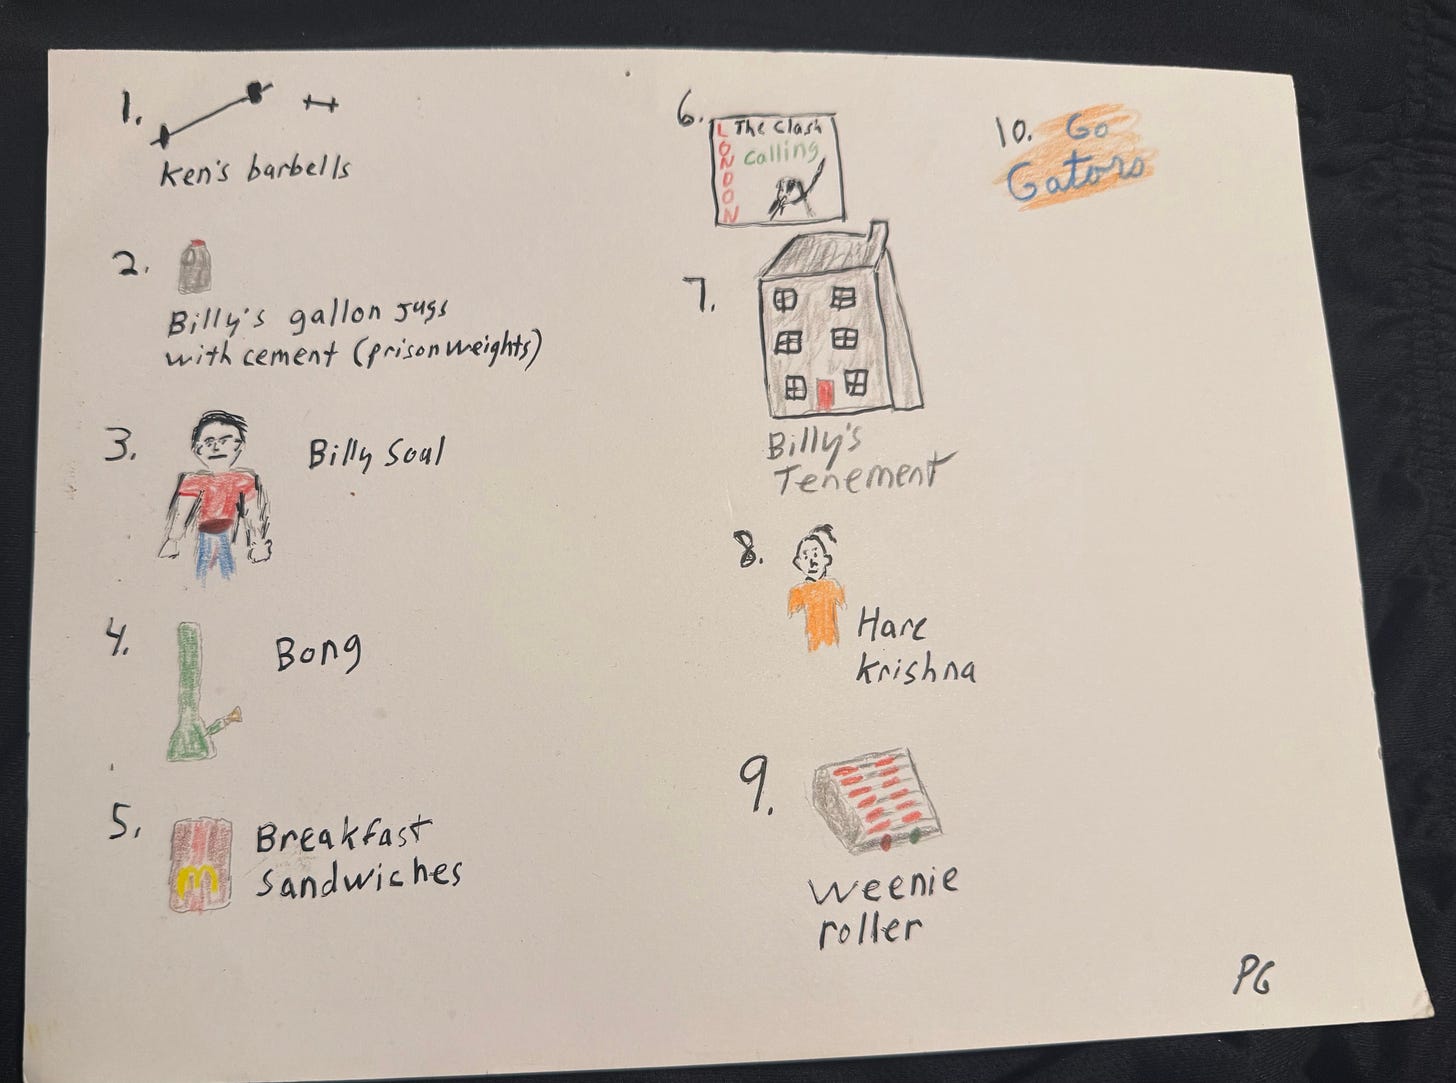 1.
Ken's barbells
2.
Billy's gallon jugs
with cement (prison weights)
3.
Billy Soul
4.
Bong
5.
M
Breakfast
Sandwiches
6.
The Clash
LONDON
Calling
7.
Billy's
Tenement
8.
Hare
Krishna
9.
Weenie
roller
10. Go
Gators
PG